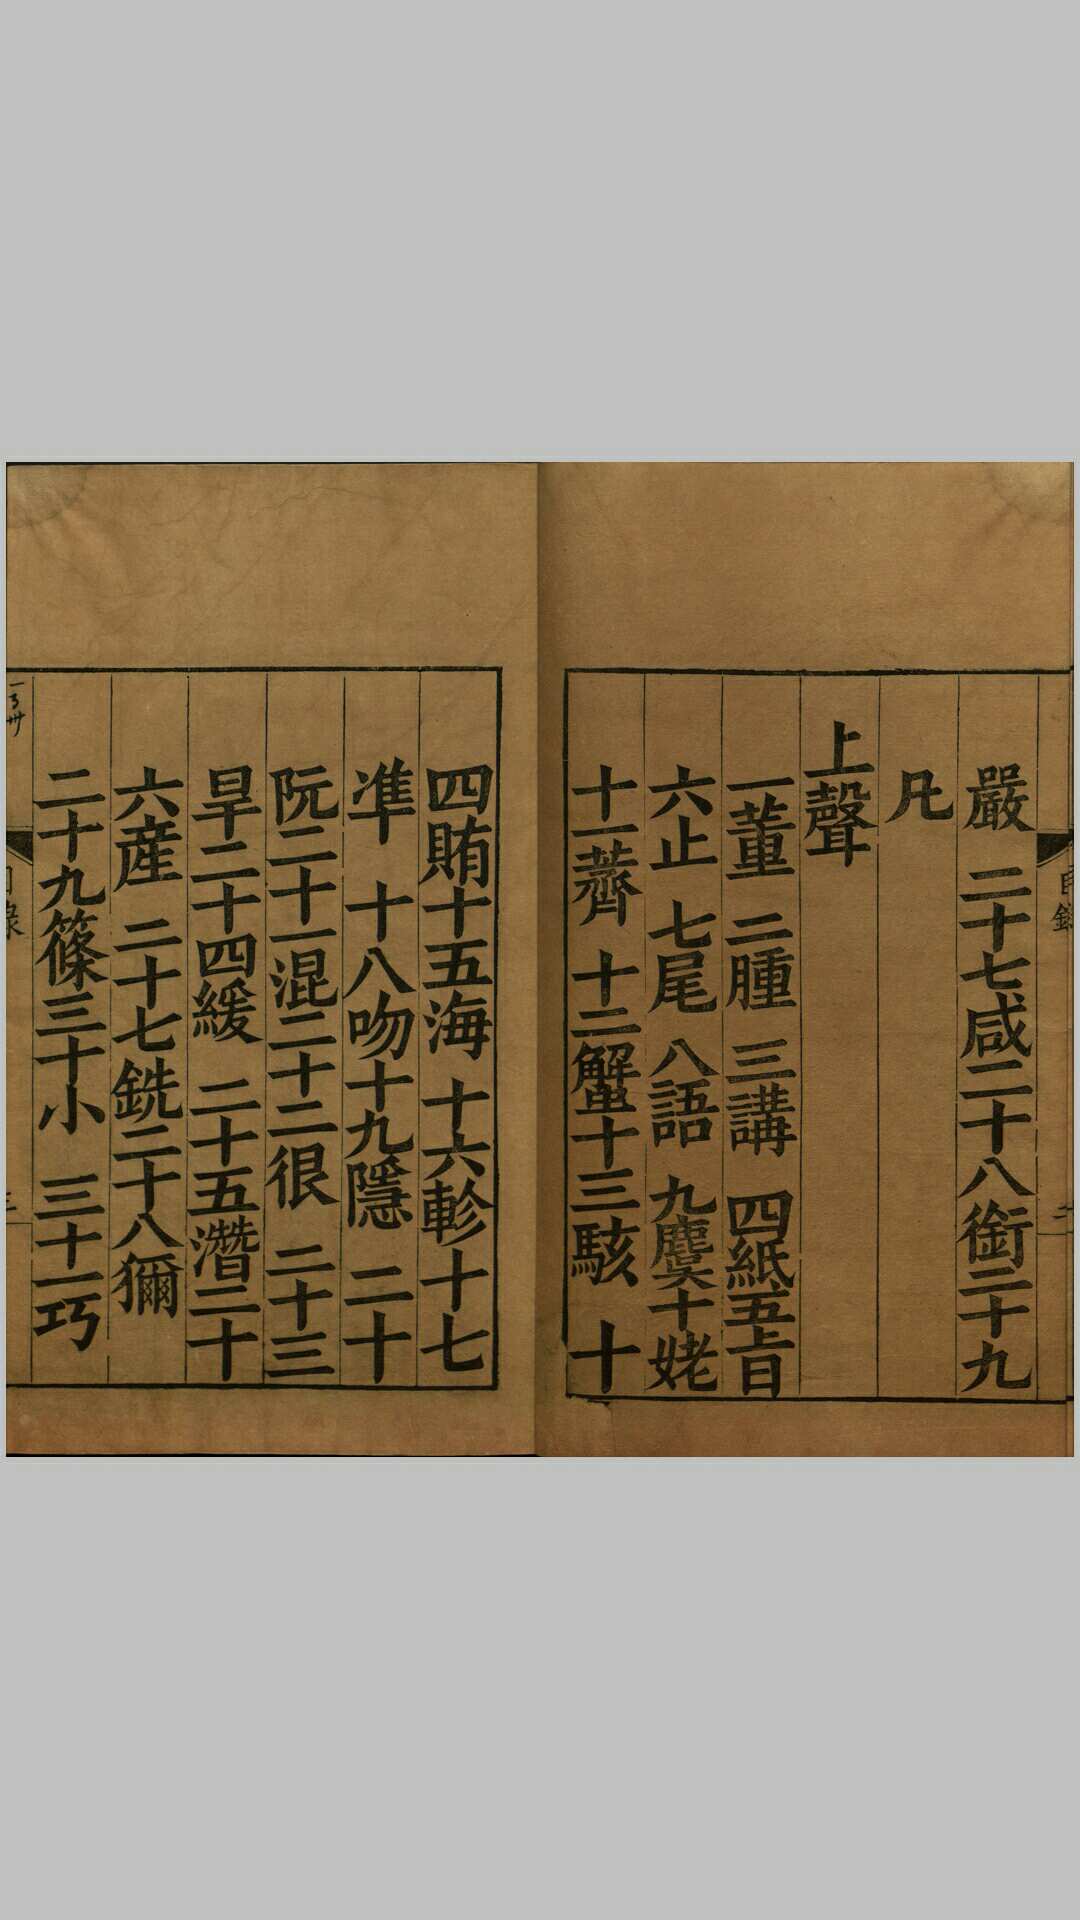 目錄
二
嚴 二十七咸二十八銜二十九
凡
上聲
一董 二腫 三講 四紙五旨
六止 七尾 八語 九麌十姥
十一薺 十二蟹十三駭 十
四賄十五海 十六軫十七
凖 十八吻十九隱 二十
阮二十一混二十二很 二十三
旱二十四緩 二十五潸二十
六産 二十七銑二十八獮
二十九篠三十小 三十一巧
目錄
三